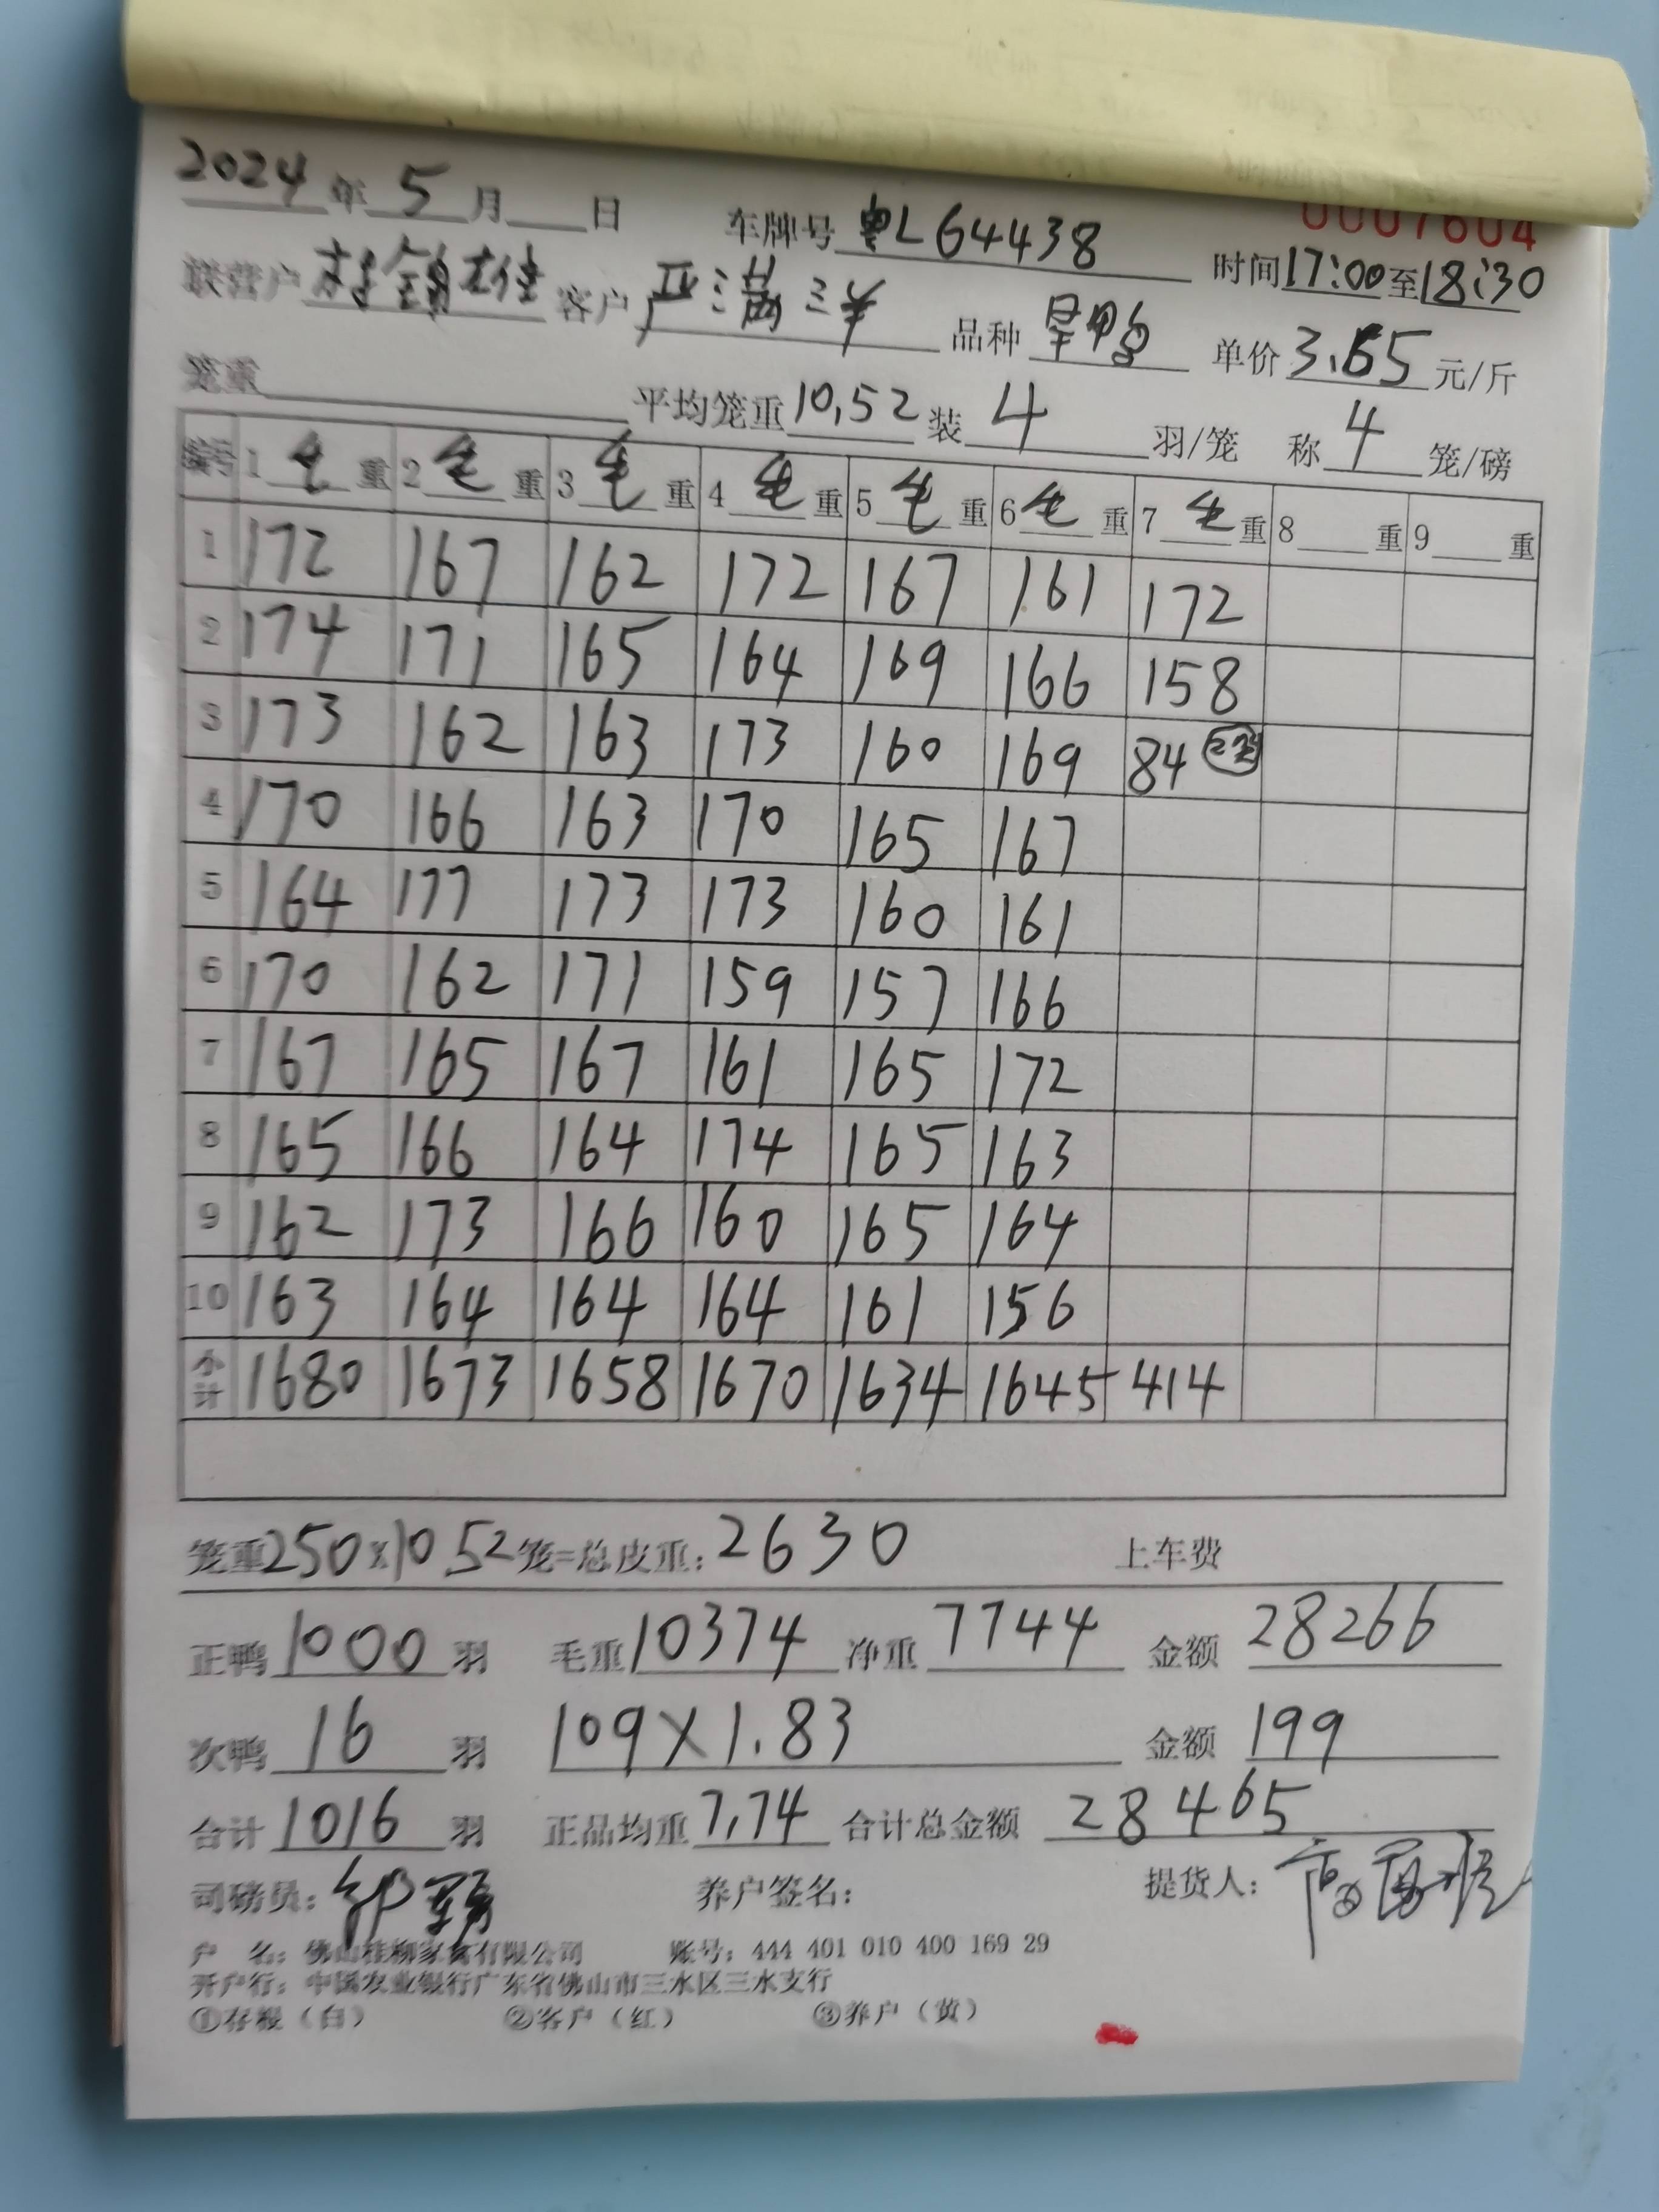 2024年5月 日 车牌号 粤L64438 0007604
联营户 客户 严满三羊 时间17:00至18:30
品种 旱鸭 单价3.65元/斤
笼重 平均笼重10.52 装4羽/笼 称4笼/磅
编号 1毛重 2毛重 3毛重 4毛重 5毛重 6毛重 7毛重 8 重 9 重
1 172 167 162 172 167 161 172
2 174 171 165 164 169 166 158
3 173 162 163 173 160 169 84 2笼
4 170 166 163 170 165 167
5 164 177 173 173 160 161
6 170 162 171 159 157 166
7 167 165 167 161 165 172
8 165 166 164 174 165 163
9 162 173 166 160 165 164
10 163 164 164 164 161 156
小计 1680 1673 1658 1670 1634 1645 414
笼重250×10.52笼=总皮重:2630 上车费
正鸭1000羽 毛重10374 净重7744 金额28266
次鸭16羽 109×1.83 金额199
合计1016羽 正品均重7.74 合计总金额28465
司磅员: 养户签名: 提货人:
户 名:佛山桂柳家禽有限公司 账号:444 401 010 400 169 29
开户行:中国农业银行广东省佛山市三水区三水支行
①存根(白) ②客户(红) ③养户(黄)